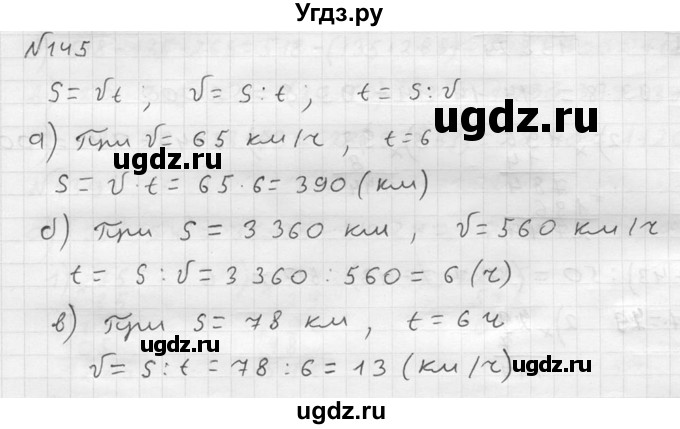 Угдз.ру
№145
S = vt ; v = S : t ; t = S : v
а) При v = 65 км/ч , t = 6
ugdz.ru ugdz.ru
S = v · t = 65 · 6 = 390 (км)
б) При S = 3 360 км , v = 560 км/ч
t = S : v = 3 360 : 560 = 6 (ч)
в) При S = 78 км , t = 6 ч
ugdz.ru ugdz.ru
v = S : t = 78 : 6 = 13 (км/ч)
ugdz.ru